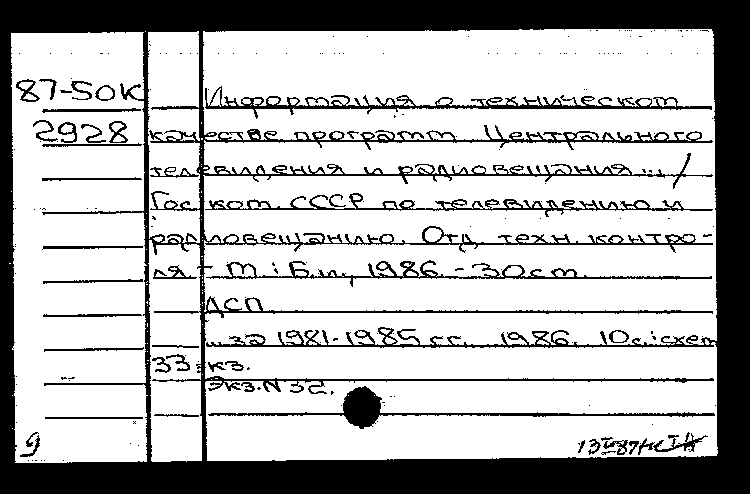 87-5ОК
2928
Информация о техническом
качестве программ Центрального
телевидения и радиовещания ... /
Гос. ком. СССР по телевидению и
радиовещанию. Отд. техн. контро-
ля - М.: Б.и., 1986. - 30 см.
ДСП
... за 1981-1985 гг. 1986. 10 с.: схем
33 экз.
Экз. N 32.
9